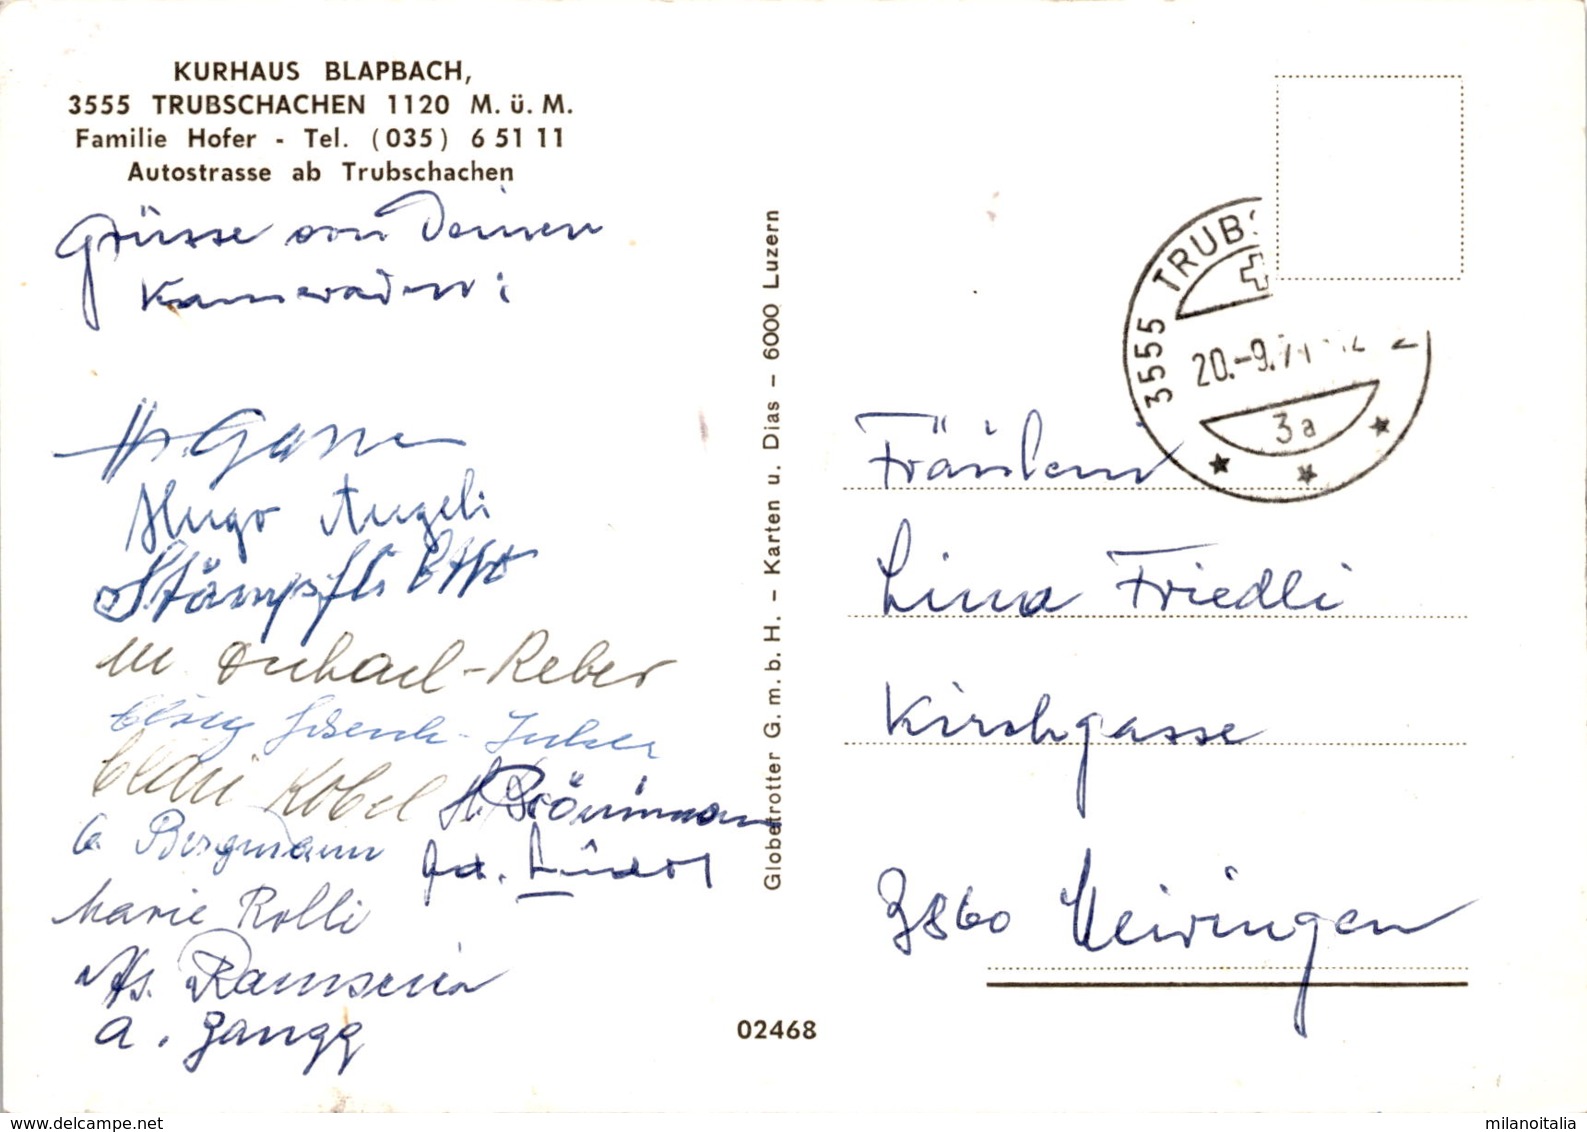 KURHAUS BLAPBACH,
3555 TRUBSCHACHEN 1120 M. ü. M.
Familie Hofer - Tel. (035) 6 51 11
Autostrasse ab Trubschachen
Grüsse von Deinen
Kameraden:
Hs. Gasser
Hugo Angeli
Stämpfli Otto
M Michael-Reber
Schenk-
Kobel
H. Brönnimann
G Bergmann
Marie Rolli
Hs. Ramseier
a. Zaugg
Globetrotter G. m. b. H. – Karten u. Dias – 6000 Luzern
02468
3555 TRUBS
20.-9.71
3a
Fräulein
Lina Friedli
Kirchgasse
3860 Meiringen
milanoitalia
delcampe.net